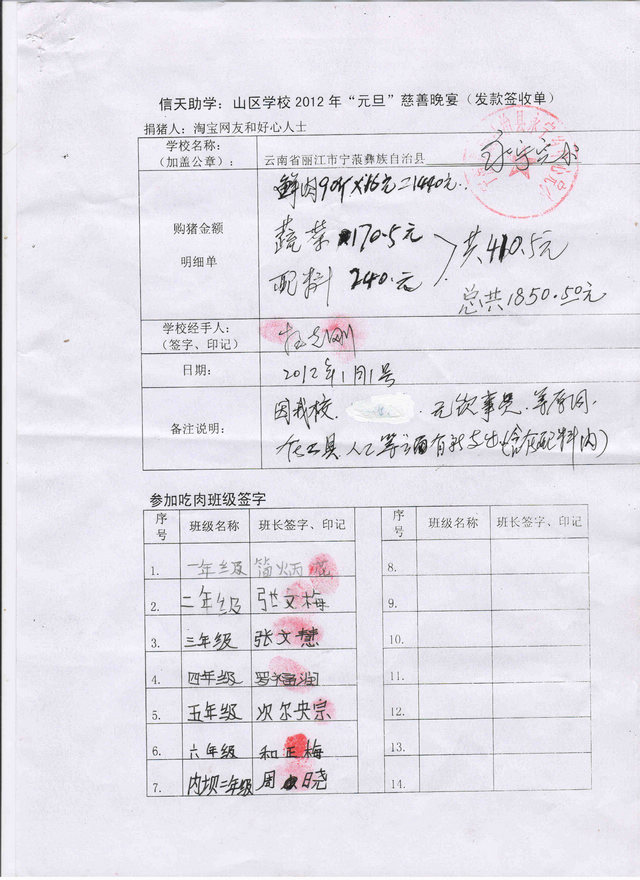 信天助学：山区学校 2012 年“元旦”慈善晚宴（发款签收单）
捐猪人：淘宝网友和好心人士
学校名称：
（加盖公章）：
云南省丽江市宁蒗彝族自治县
购猪金额
明细单
鲜肉90斤×16元=1440元.
蔬菜 170.5元
配料 240.元
共410.5元
总共1850.50元
学校经手人：
（签字、印记）
日期：
2012年1月1号
备注说明：
因我校 无饮事员.
人工等
参加吃肉班级签字
序号 班级名称 班长签字、印记 序号 班级名称 班长签字、印记
1. 一年级 8.
2. 二年级 张文梅 9.
3. 三年级 张文慧 10.
4. 四年级 11.
5. 五年级 次尔央宗 12.
6. 六年级 和正梅 13.
7. 内坝二年级 周 晓 14.